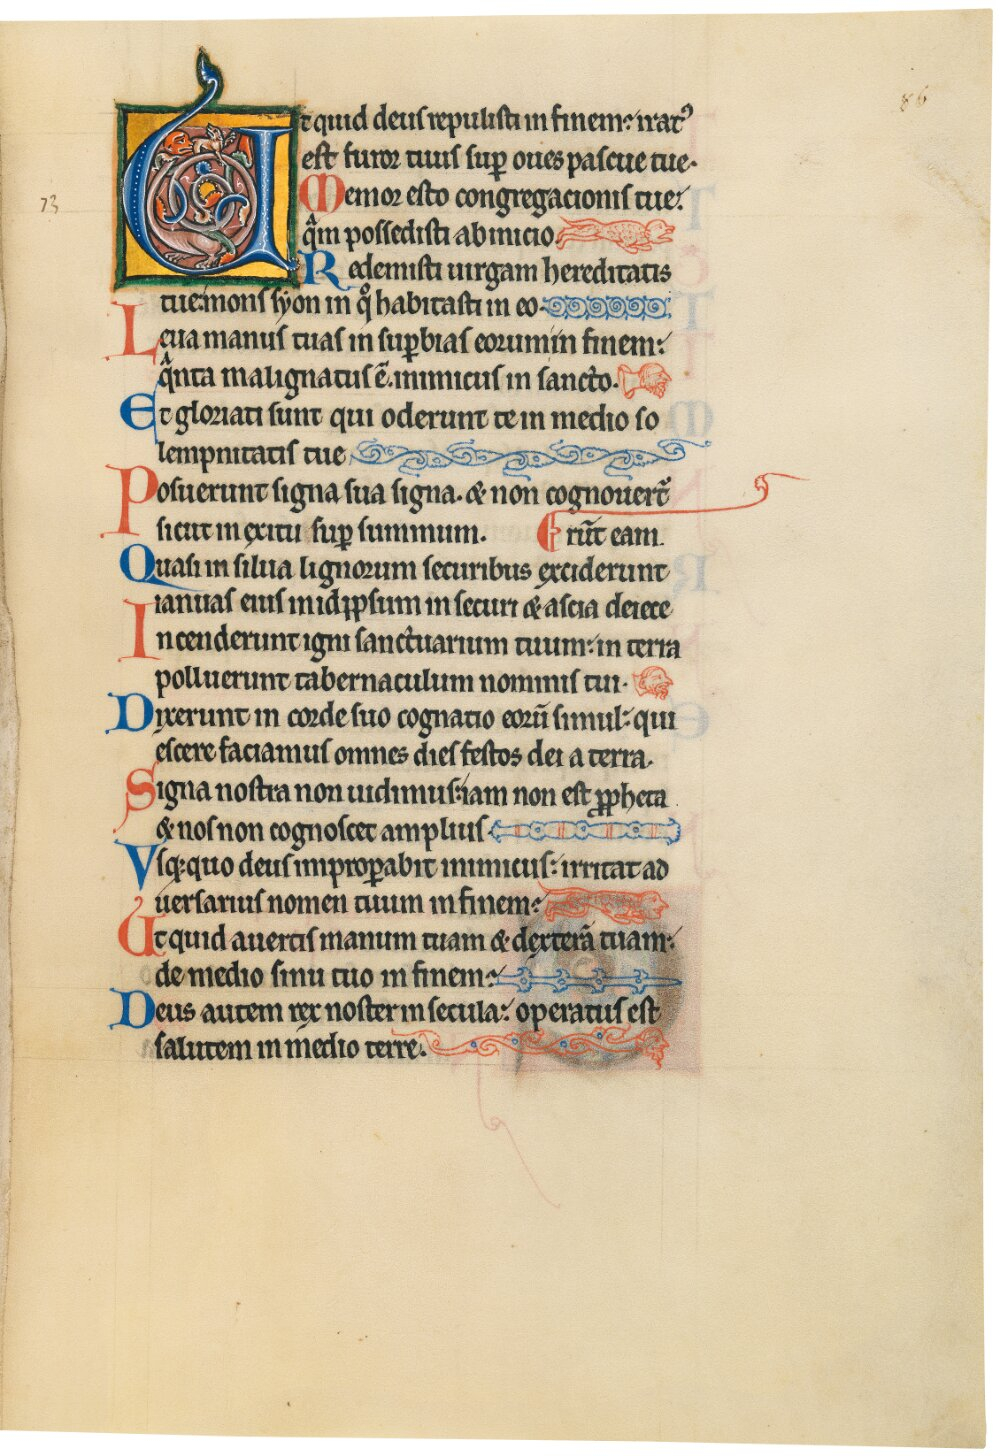 86
Ut quid deus repulisti in finem: irat᷒
est furor tuus sup̱ oues pascue tue.
Memor esto congregacionis tue:
q̄m possedisti ab inicio
73
Redemisti uirgam hereditatis
tue: mons syon in q̊ habitasti in eo.
Leua manus tuas in sup̱bias eorum in finem:
q̄nta malignatus ē. inimicus in sancto.
Et gloriati sunt qui oderunt te in medio so
lempnitatis tue
Posuerunt signa sua signa. & non cognouert̄
sicut in exitu sup̱ summum. Erūt eam.
Quasi in silua lignorum securibus exciderunt
ianuas eius in idip̱sum in securi & ascia deiece
Incenderunt igni sanctuarium tuum: in terra
polluerunt tabernaculum nominis tui.
Dixerunt in corde suo cognatio eorū simul: qui
escere faciamus omnes dies festos dei a terra.
Signa nostra non uidimus: iam non est ꝓpheta
& nos non cognoscet amplius
Vsq; quo deus improp̱abit inimicus: irritat ad
uersarius nomen tuum in finem:
Ut quid auertis manum tuam & dexterā tuam:
de medio sinu tuo in finem:
Deus autem rex noster in secula: operatus est
salutem in medio terre.